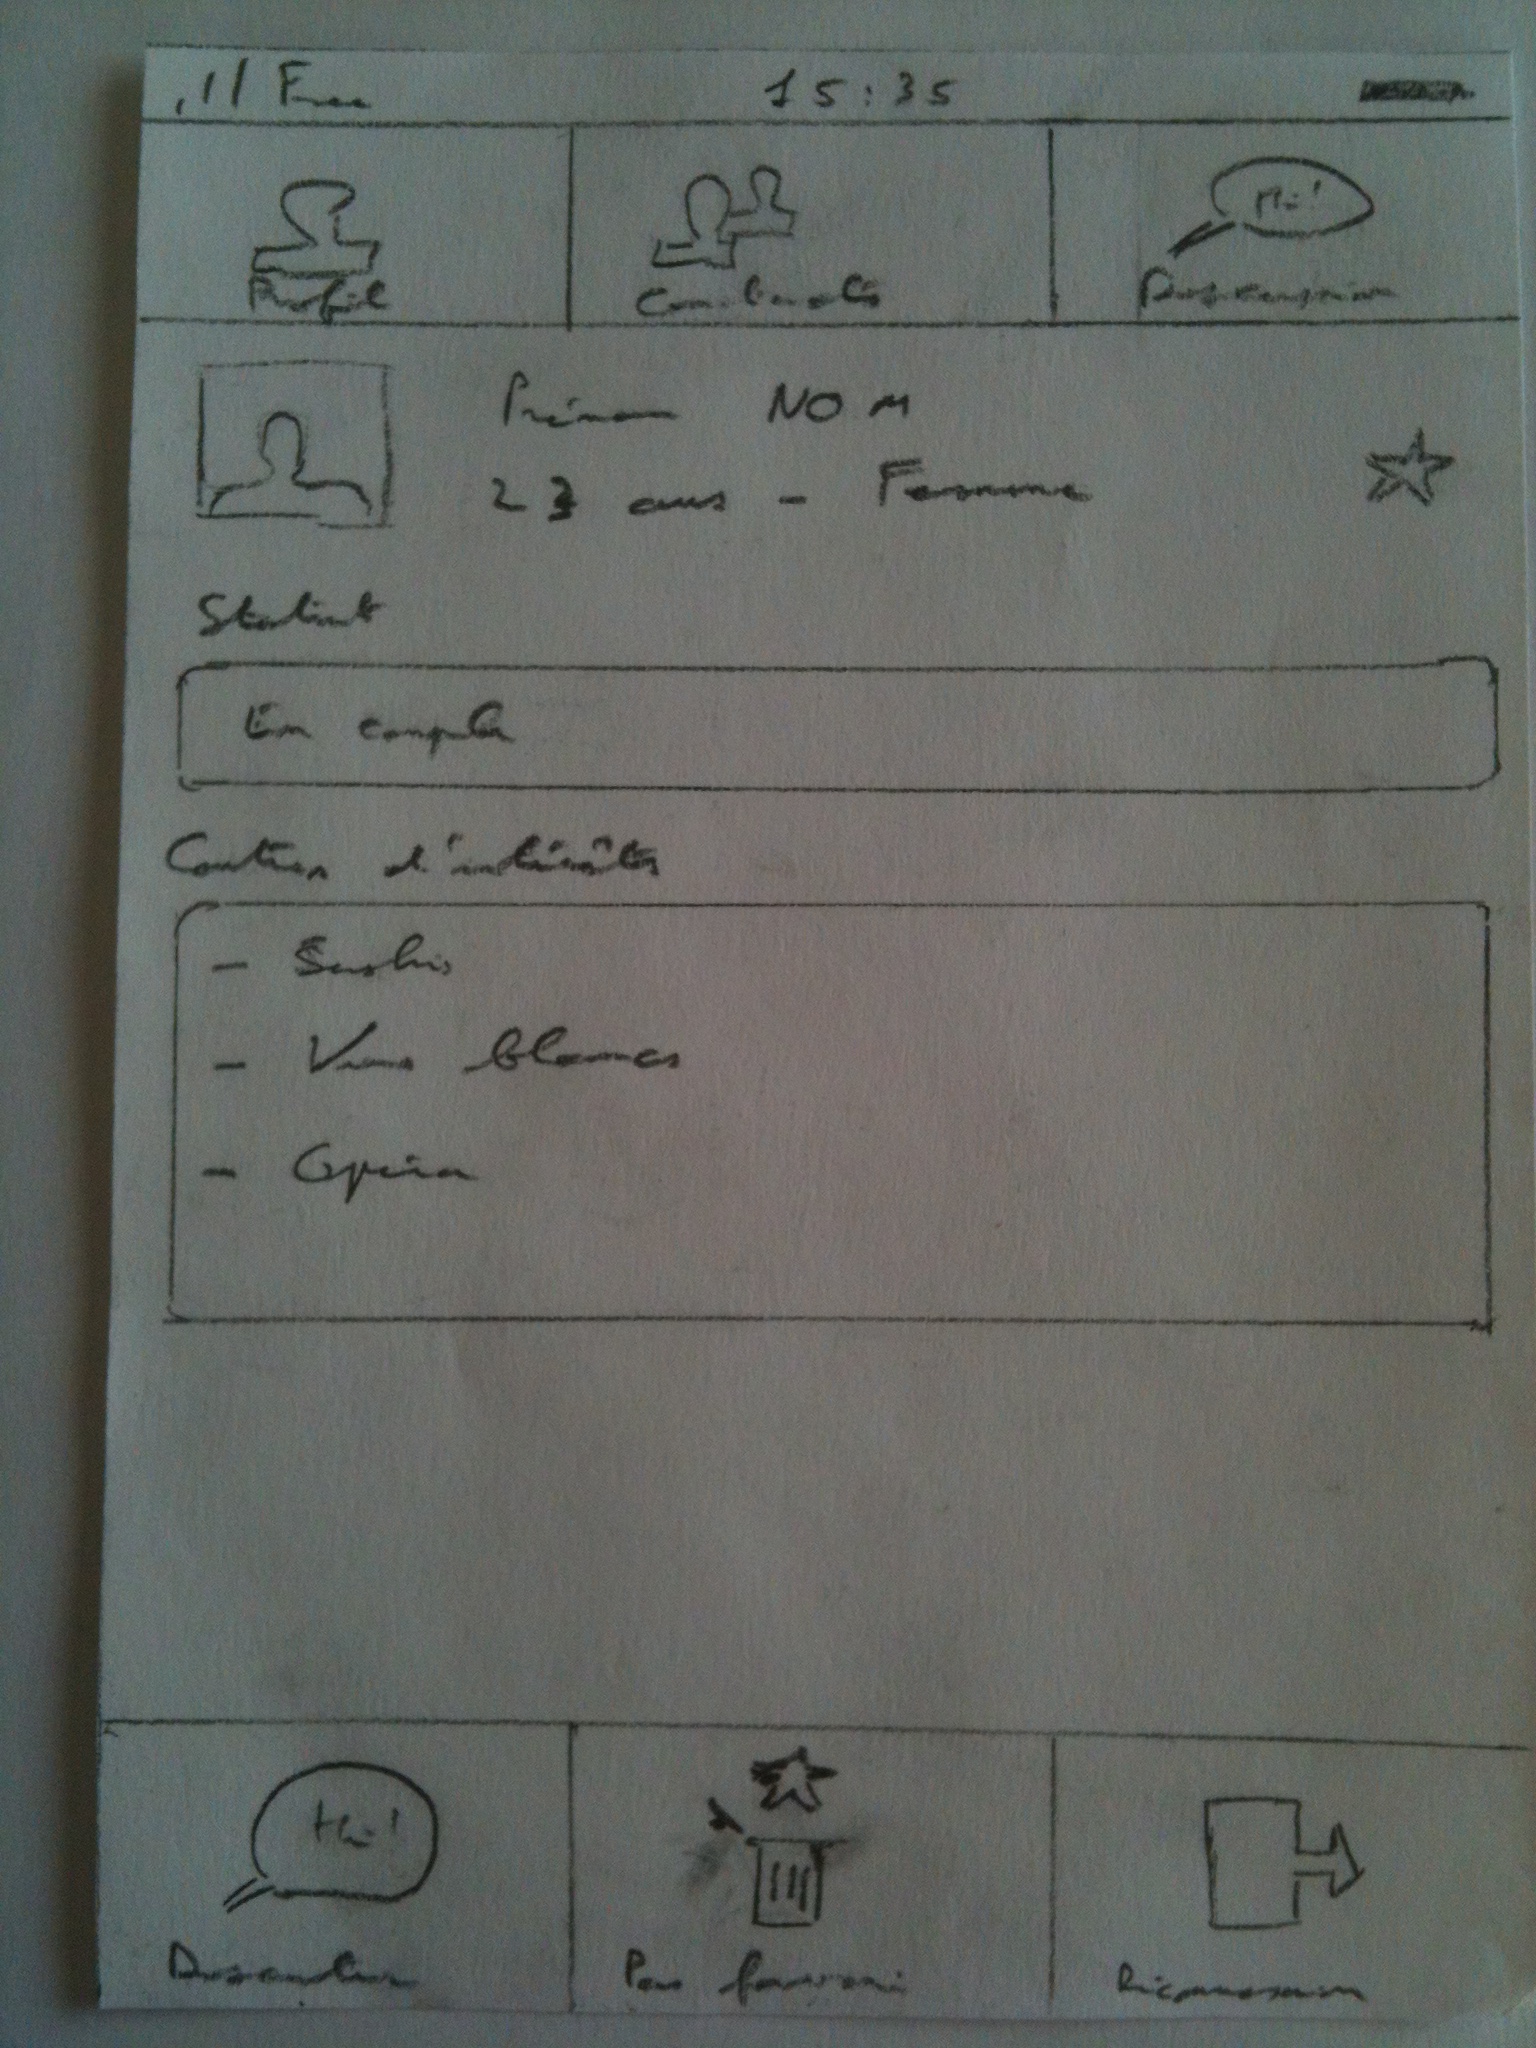 Free 15:35
Profil Contacts Discussion
Hi!
Prénom NOM
23 ans - Femme
Statut
En couple
Centres d'intérêts
- Sushis
- Vins blancs
- Opéra
Hi!
Discuter Pas favori